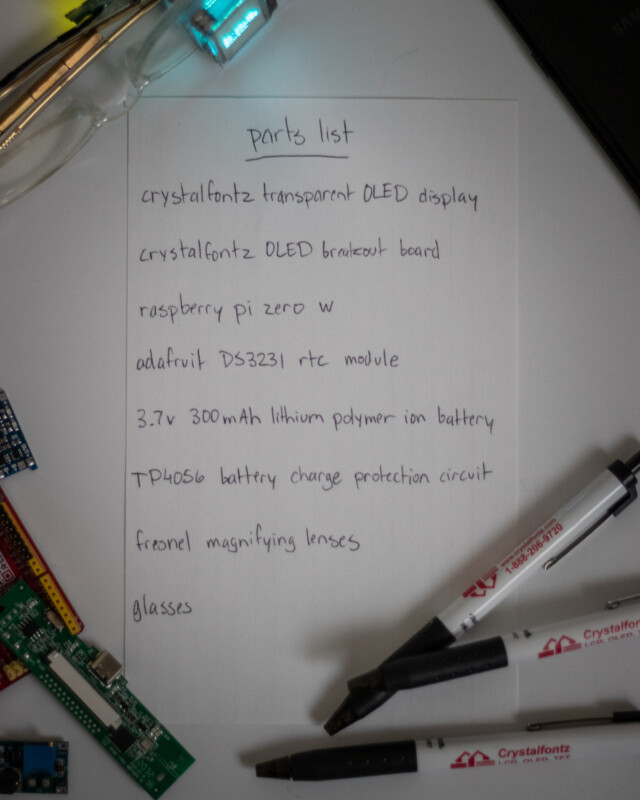 parts list
crystalfontz transparent OLED display
crystalfontz OLED breakout board
raspberry pi zero w
adafruit DS3231 rtc module
3.7v 300mAh lithium polymer ion battery
TP4056 battery charge protection circuit
fresnel magnifying lenses
glasses
1-888-206-9720
Crystalfontz
LCD, OLED, TFT
Crystalfontz
LCD, OLED, TFT